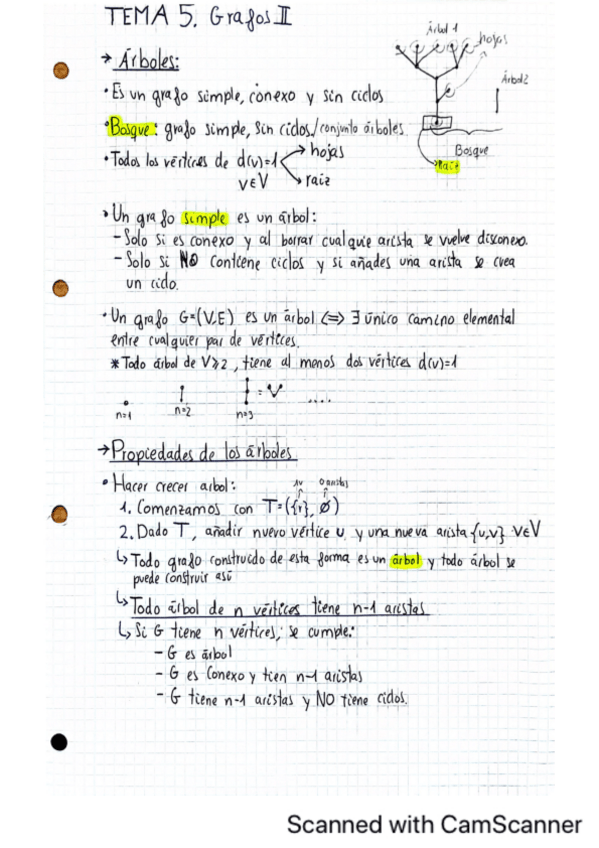 TEMA 5. Grafos II
Árbol 1
hojas
Árbol 2
Bosque
Raiz
→ Árboles:
• Es un grafo simple, conexo y sin ciclos
• Bosque: grafo simple, sin ciclos/conjunto árboles.
• Todos los vértices de d(v)=1 → hojas
v∈V → raiz
• Un grafo simple es un árbol:
- Solo si es conexo y al borrar cualquie arista se vuelve disconexo.
- Solo si NO contiene ciclos y si añades una arista se crea
un ciclo.
• Un grafo G=(V,E) es un árbol ⟺ ∃ único camino elemental
entre cualquier par de vértices.
* Todo árbol de V≥2, tiene al menos dos vértices d(v)=1
= V ....
n=1 n=2 n=3
→ Propiedades de los árboles
• Hacer crecer arbol: 1v 0 aristas
1. Comenzamos con T=({r}, ∅)
2. Dado T, añadir nuevo vértice u y una nueva arista {u,v} v∈V
↳ Todo grafo construido de esta forma es un árbol y todo árbol se
puede construir así
↳ Todo árbol de n vértices tiene n-1 aristas
↳ Si G tiene n vértices, se cumple:
- G es árbol
- G es Conexo y tien n-1 aristas
- G tiene n-1 aristas y NO tiene ciclos.
Scanned with CamScanner